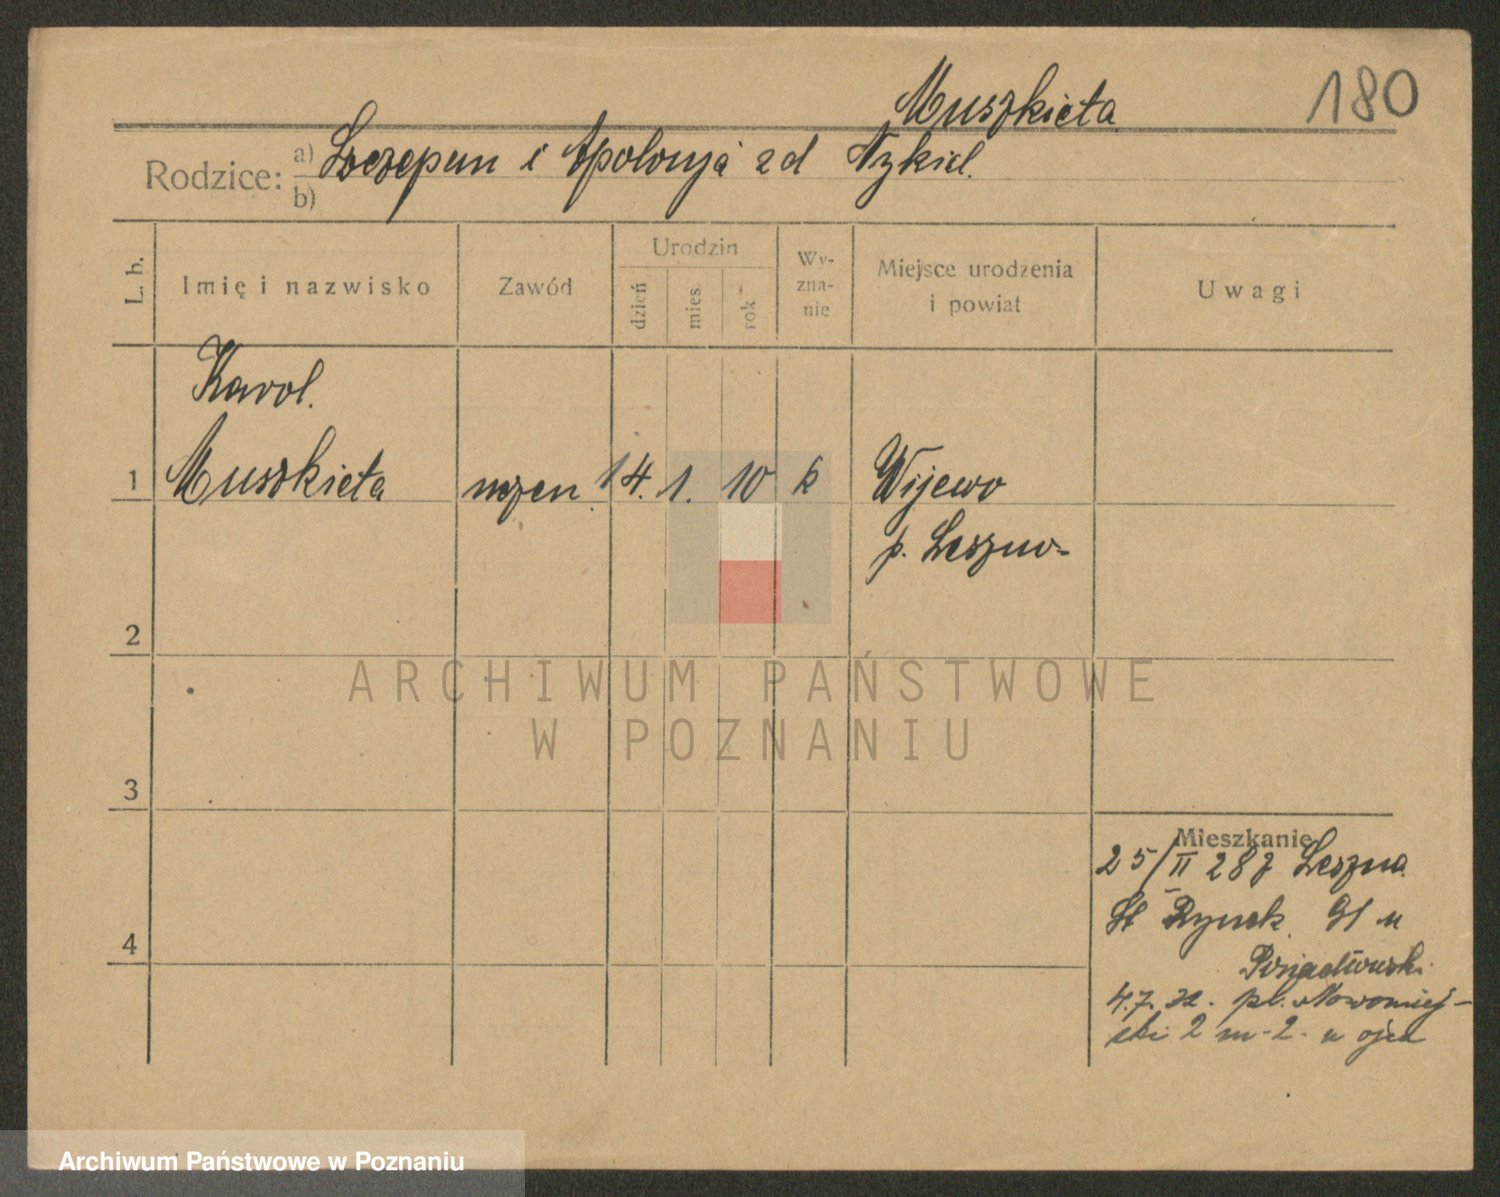 Muszkieta
180
Rodzice: a) Szczepan i Apolonja zd Nykiel.
b)
L. b.
Imię i nazwisko
Zawód
Urodzin
dzień
mies.
rok
Wy-
zna-
nie
Miejsce urodzenia
i powiat
Uwagi
Karol.
1 Muszkieta uczen. 14. 1. 10 k Wijewo
p. Leszno-
2
ARCHIWUM PAŃSTWOWE
W POZNANIU
3
Mieszkanie
25/II 287 Leszno.
4
St Rynek. 91 u
4.7.32. pl. Nowomiej-
ski 2 m-2. u ojca
Archiwum Państwowe w Poznaniu